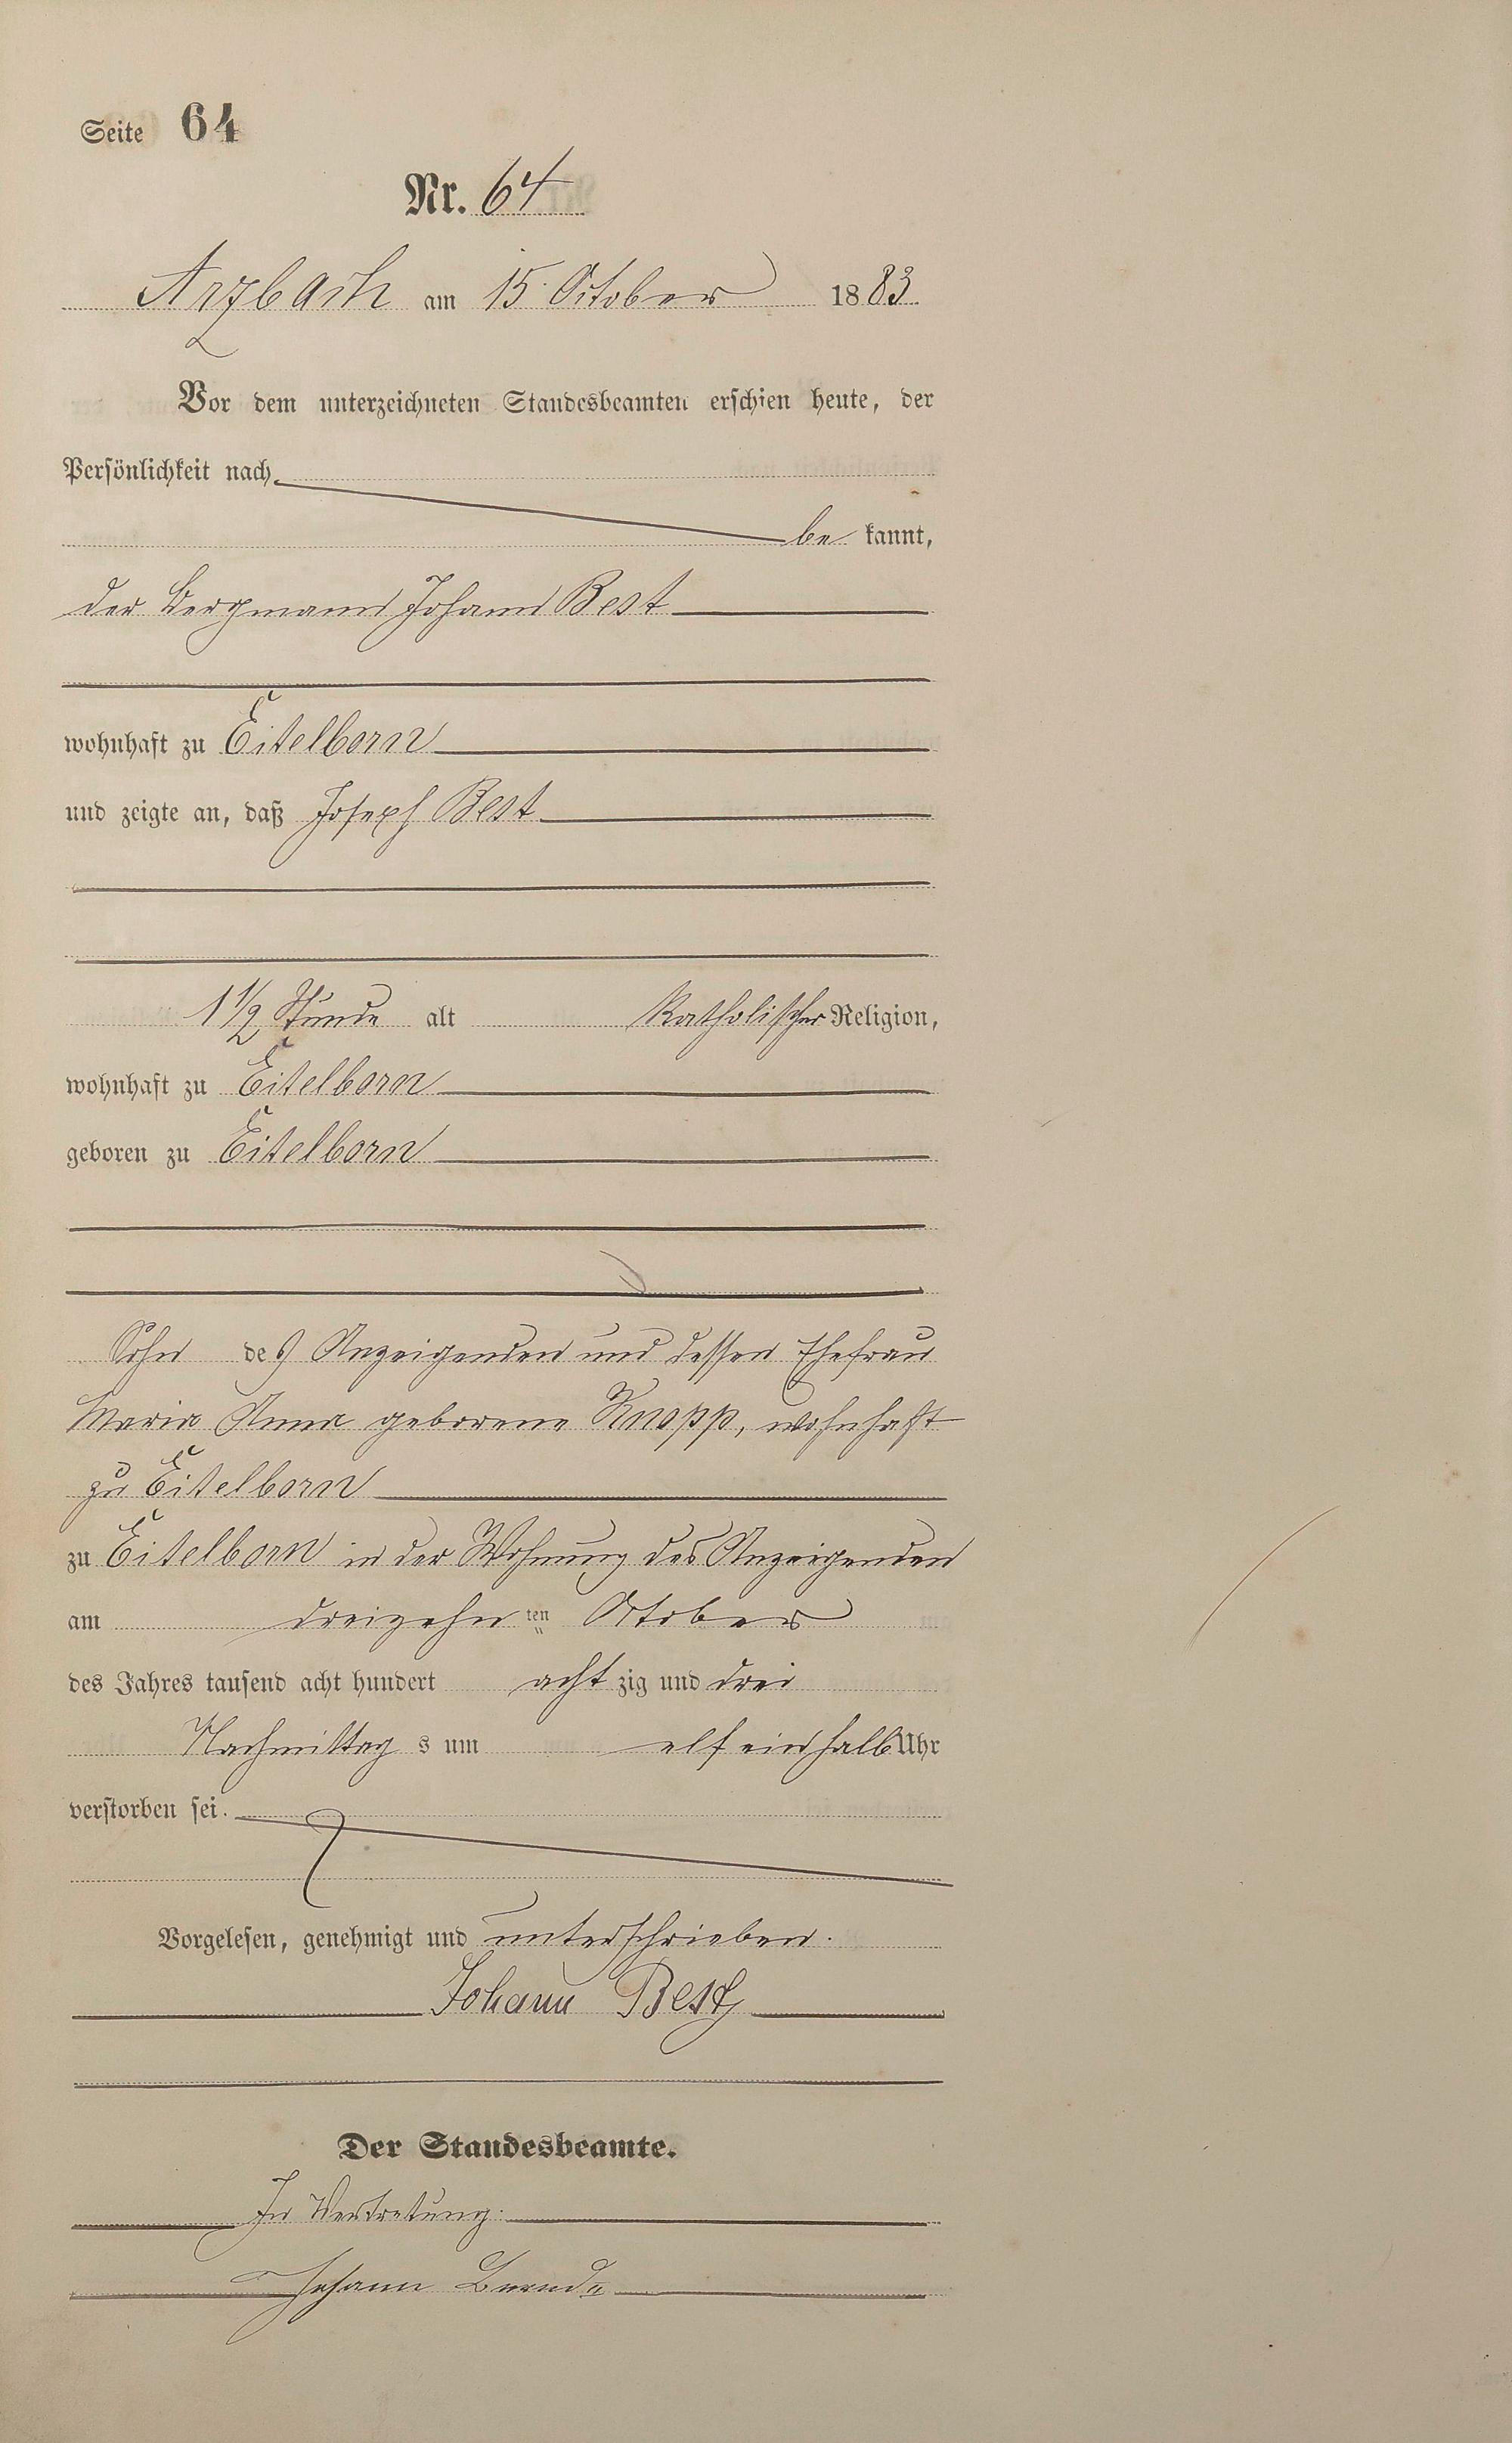 Seite 64
Nr. 64
Arzbach am 15 October 1883.
Vor dem unterzeichneten Standesbeamten erschien heute, der
Persönlichkeit nach
be kannt,
der Bergmann Johann Best
wohnhaft zu Eitelborn
und zeigte an, daß Joseph Best
1 1/2 Stunde alt Katholischer Religion,
wohnhaft zu Eitelborn
geboren zu Eitelborn
Sohn des Anzeigenden und dessen Ehefrau
Maria Anna geborene Knopp, wohnhaft
zu Eitelborn
zu Eitelborn in der Wohnung des Anzeigenden
am dreizehn ten October
des Jahres tausend acht hundert acht zig und drei
Nachmittag s um elf ein halb Uhr
verstorben sei.
Vorgelesen, genehmigt und unterschrieben.
Johann Best
Der Standesbeamte.
In Vertretung:
Johann